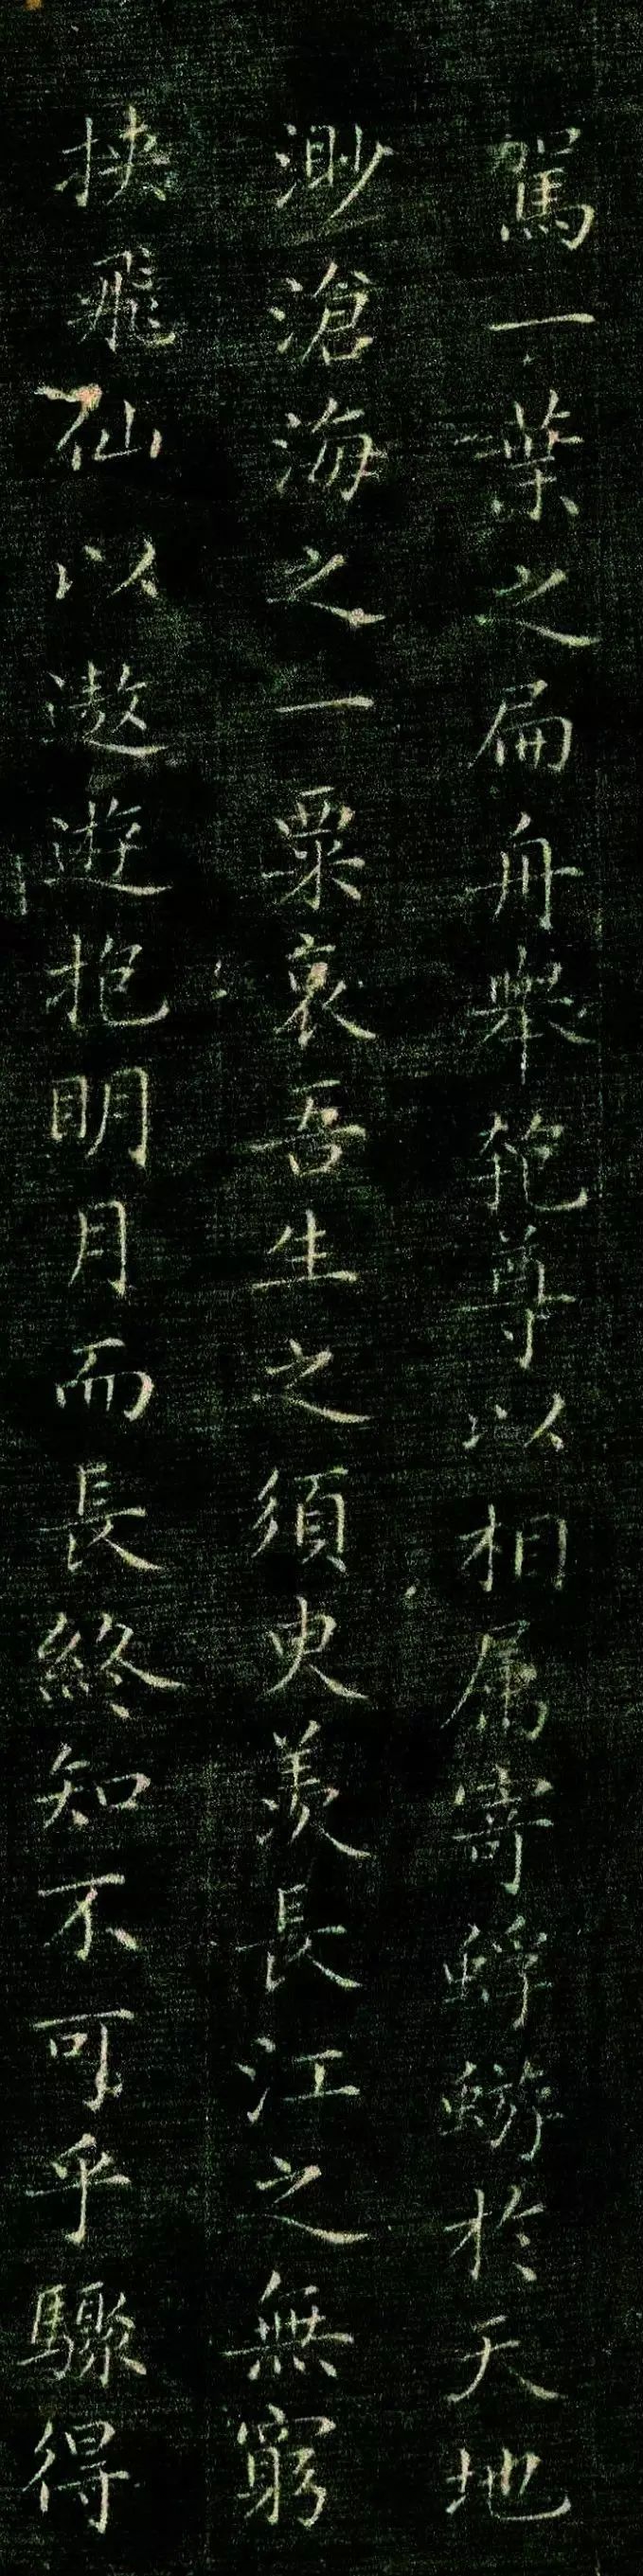 駕一葉之扁舟舉匏尊以相属寄蜉蝣於天地
渺滄海之一粟哀吾生之須臾羨長江之無窮
挟飛仙以遨遊抱明月而長終知不可乎驟得